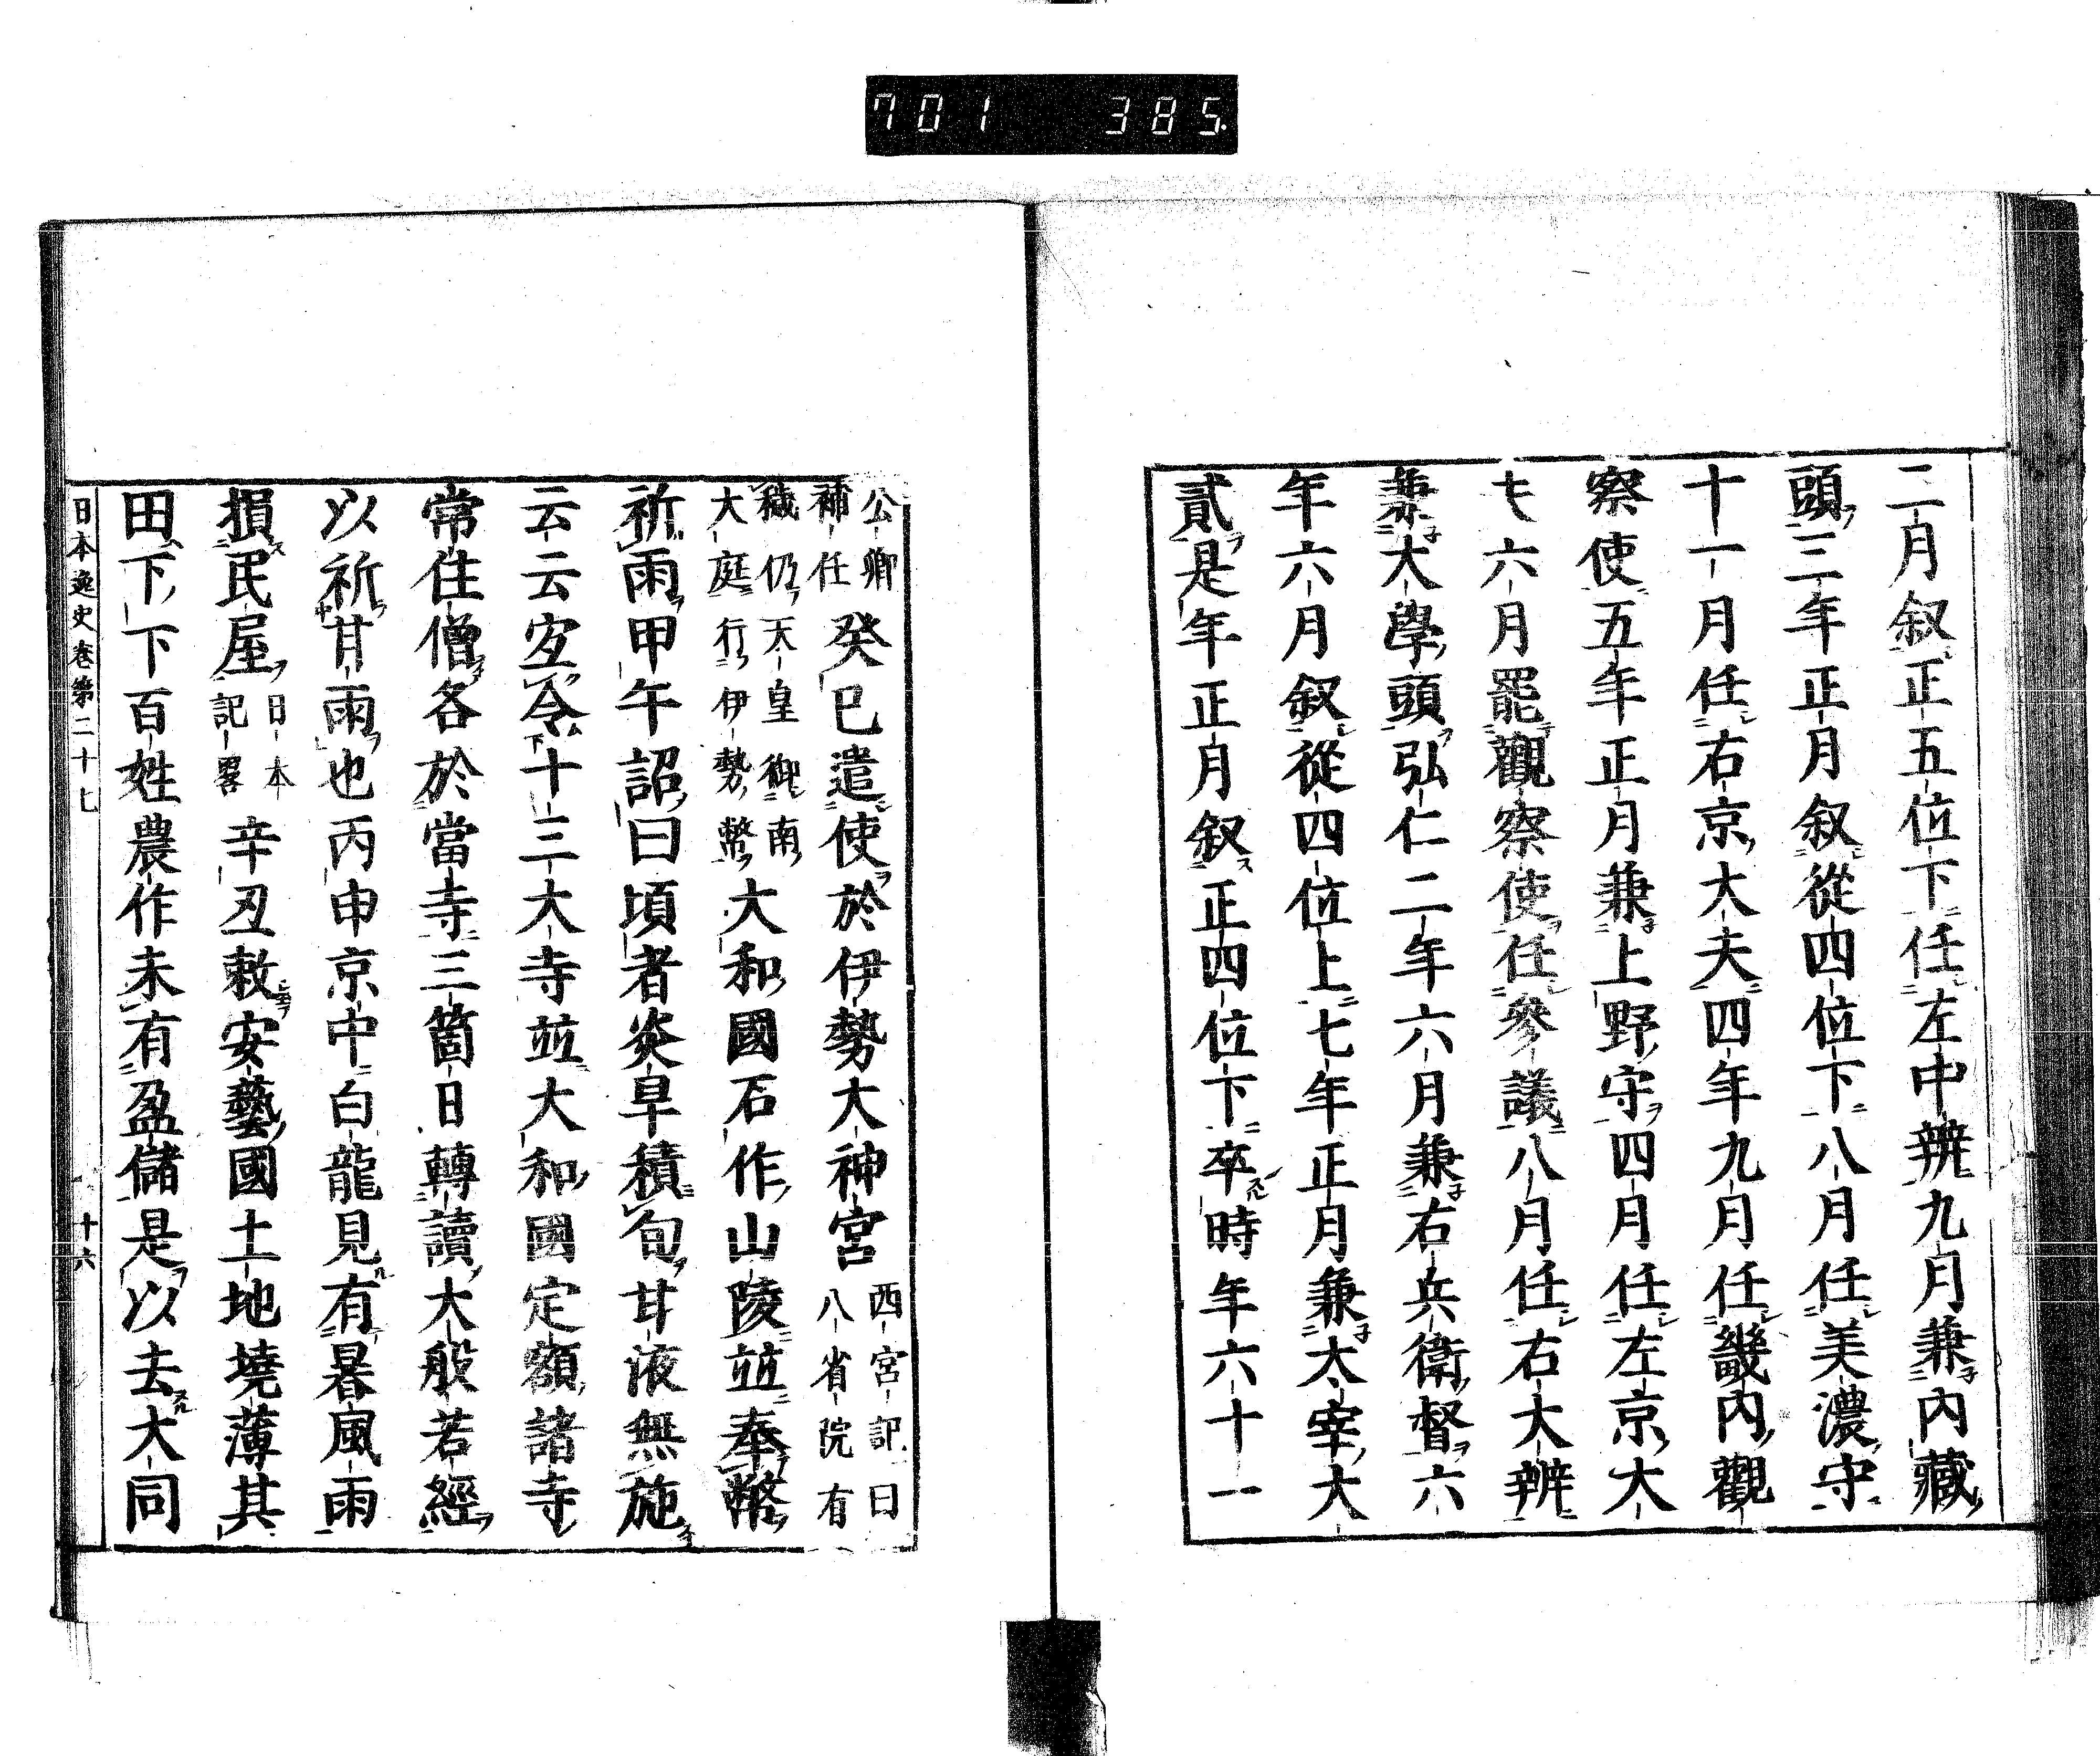 701 385
二月叙正五位下任左中辨九月兼內藏
頭三年正月叙從四位下八月任美濃守
十一月任右京大夫四年九月任畿內觀
察使五年正月兼上野守四月任左京大
夫六月罷觀察使任參議八月任右大辨
兼大學頭弘仁二年六月兼右兵衛督六
年六月叙從四位上七年正月兼太宰大
貳是年正月叙正四位下卒時年六十一
公卿
補任
癸巳遣使於伊勢大神宮
西宮記曰
八省院有
穢仍天皇御南
大庭行伊勢幣
大和國石作山陵竝奉幣
祈雨甲午詔曰頃者炎旱積旬甘液無施
云云宜令十三大寺竝大和國定額諸寺
常住僧各於當寺三箇日轉讀大般若經
以祈甘雨也丙申京中白龍見有暴風雨
損民屋
日本
記畧
辛丑敕安藝國土地墝薄其
田下下百姓農作未有盈儲是以去大同
日本逸史卷第二十七 十六